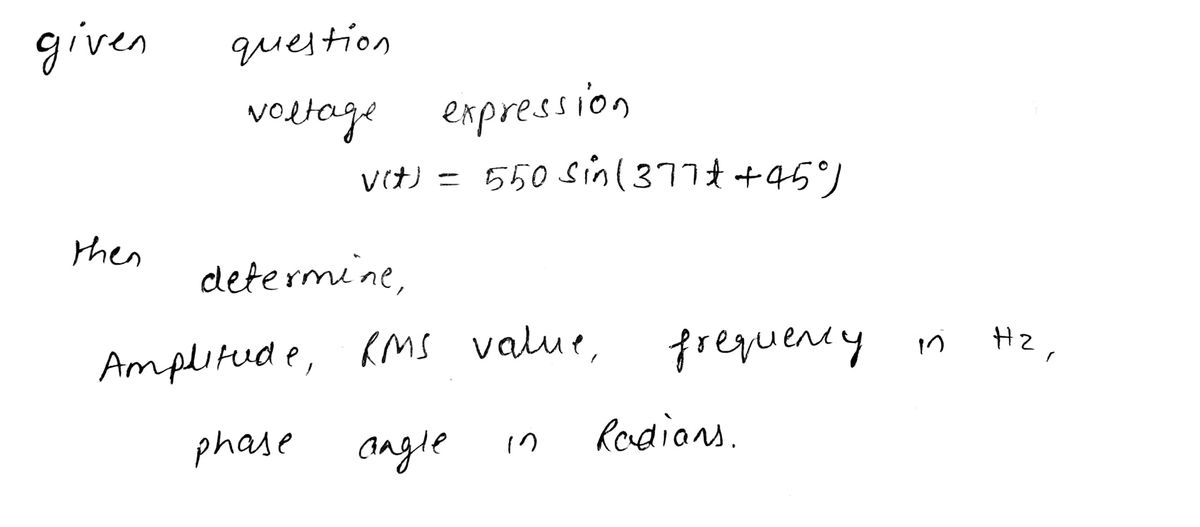 given question
voltage expression
v(t) = 550 sin(377t +45°)
then
determine,
Amplitude, RMS value, frequency in Hz,
phase angle in Radians.